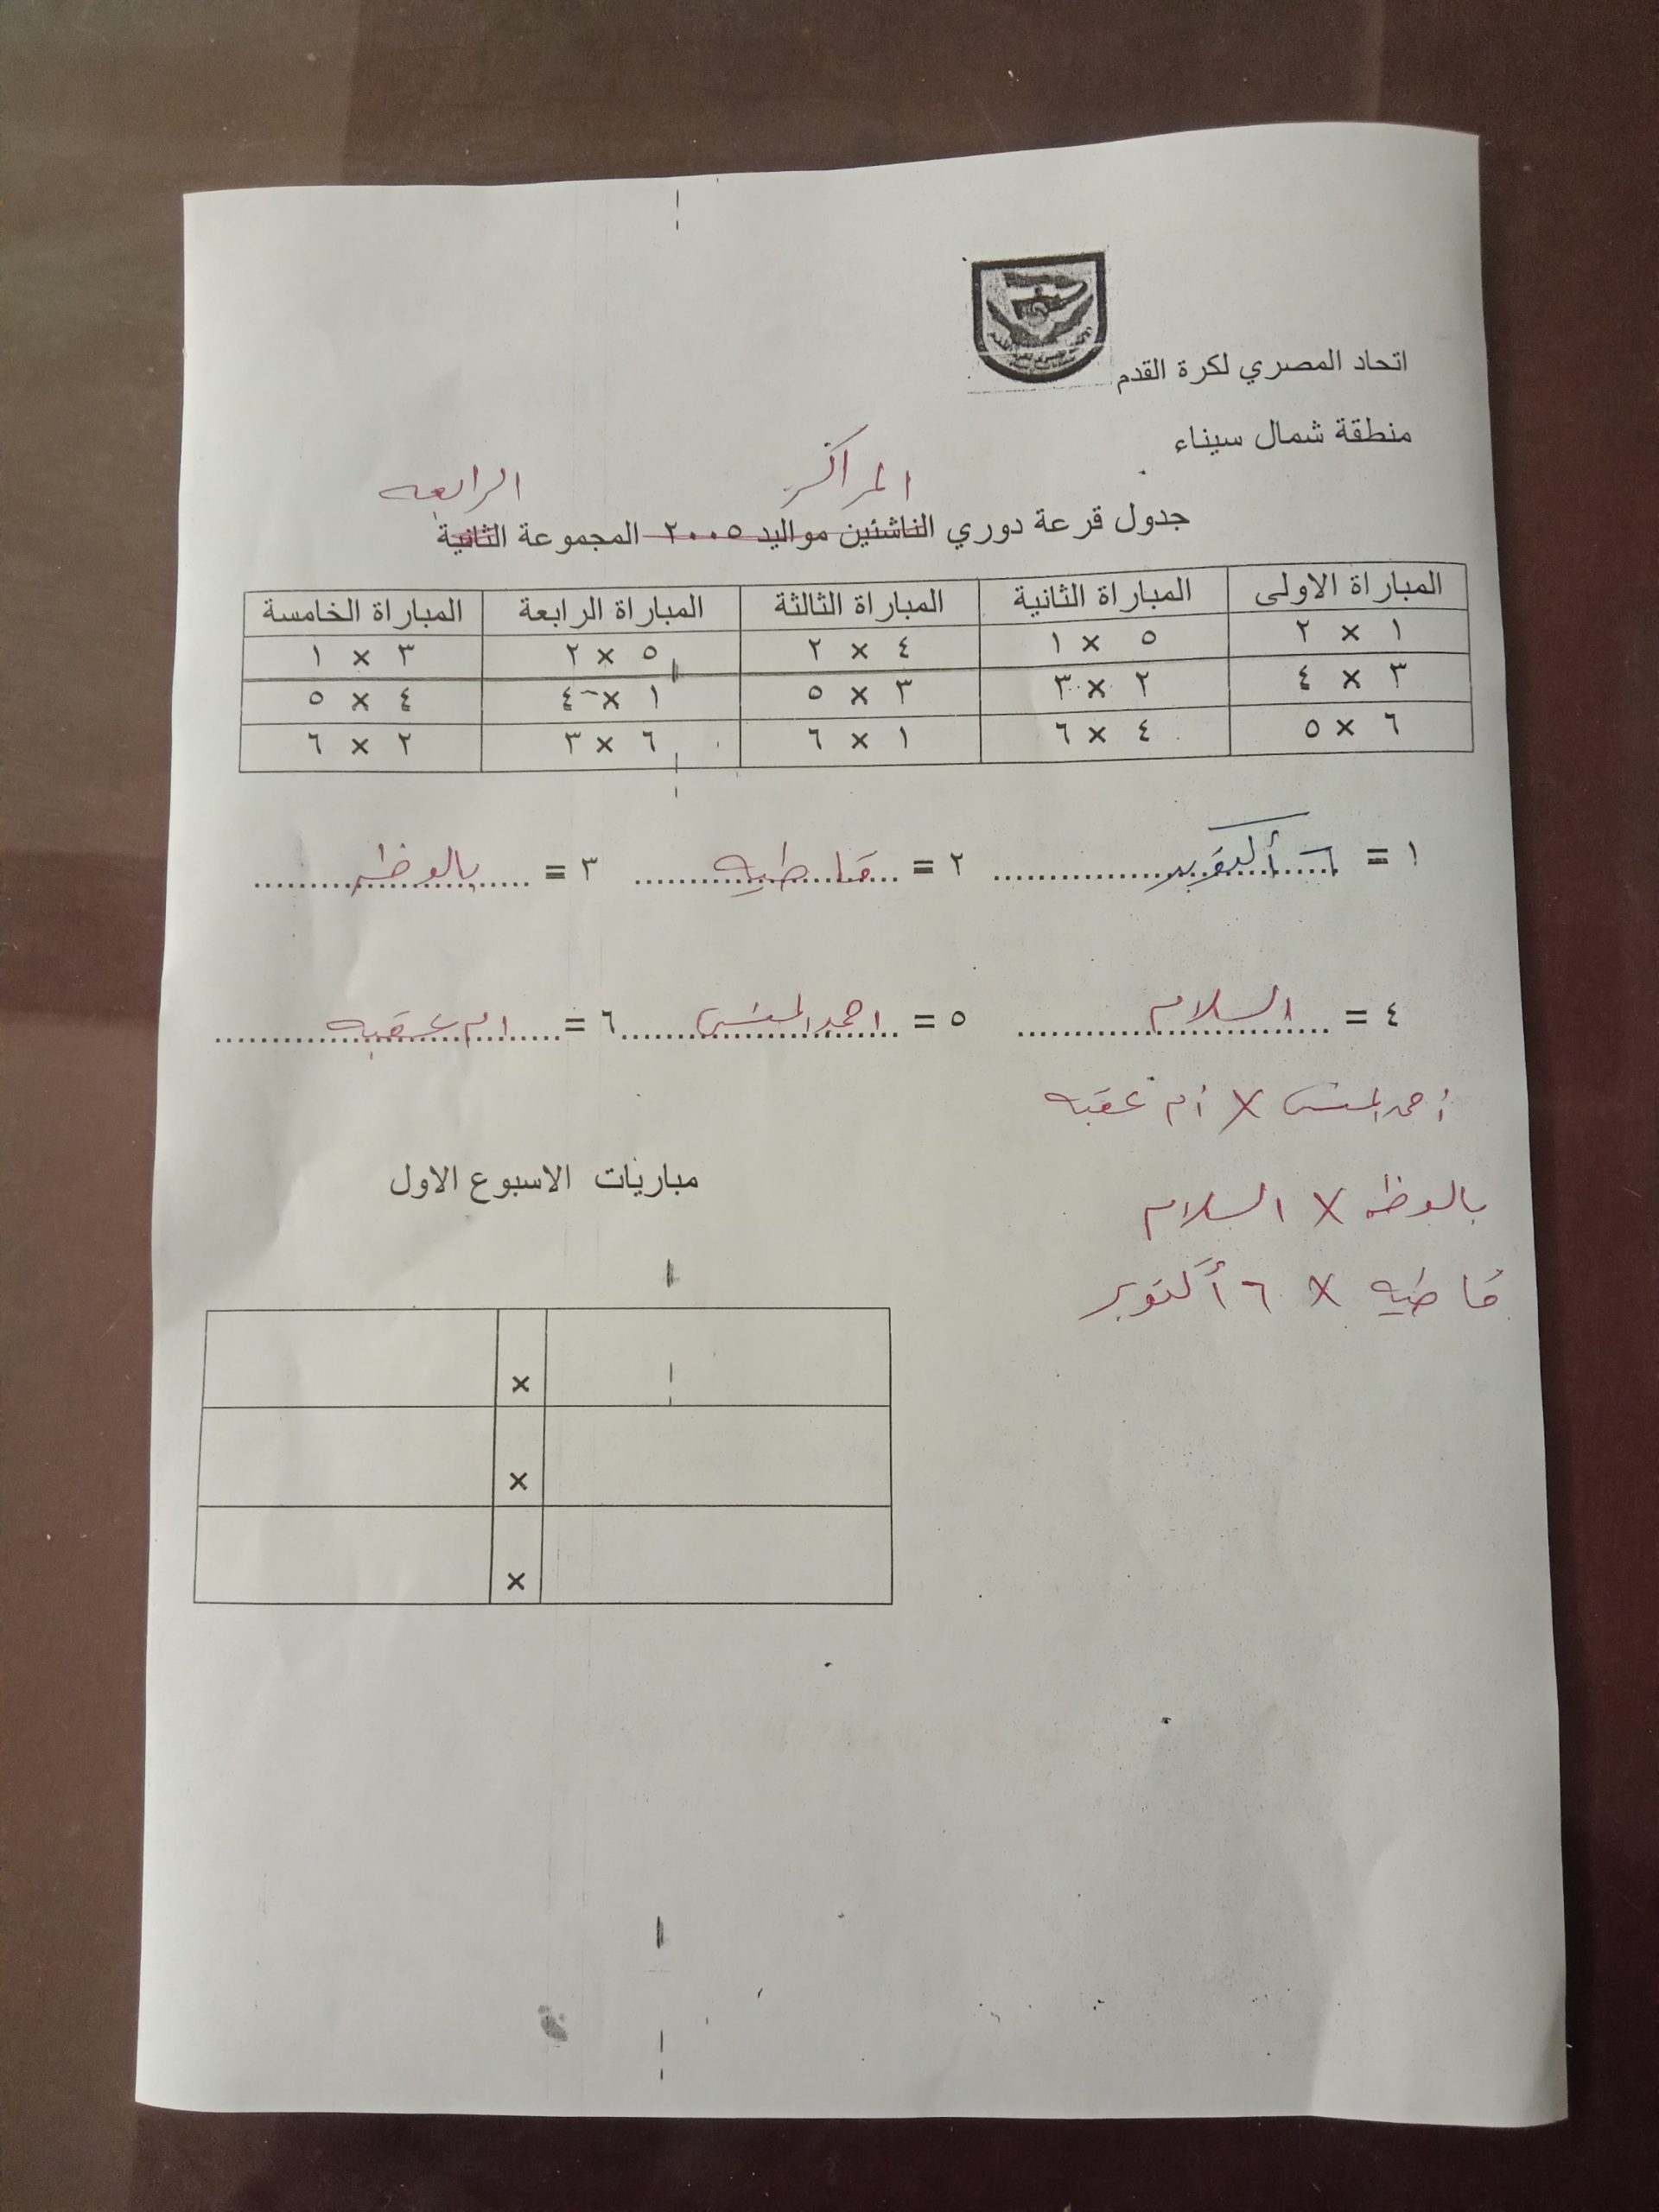 اتحاد المصري لكرة القدم
منطقة شمال سيناء
المراكز الرابعه
جدول قرعة دوري الناشئين مواليد ٢٠٠٥ المجموعة الثانية
المباراة الاولى المباراة الثانية المباراة الثالثة المباراة الرابعة المباراة الخامسة
١ × ٢ ٥ × ١ ٤ × ٢ ٥ × ٢ ٣ × ١
٣ × ٤ ٢ × ٣ ٣ × ٥ ١ × ٤ ٤ × ٥
٦ × ٥ ٤ × ٦ ١ × ٦ ٦ × ٣ ٢ × ٦
١ = ٦ أكتوبر ٢ = قاطيه ٣ = بالوظه
٤ = السلام ٥ = احمد المنسى ٦ = ام عقبه
أحمد المنسى X أم عقبه
بالوظه X السلام
قاطيه X ٦ أكتوبر
مباريات الاسبوع الاول
×
×
×